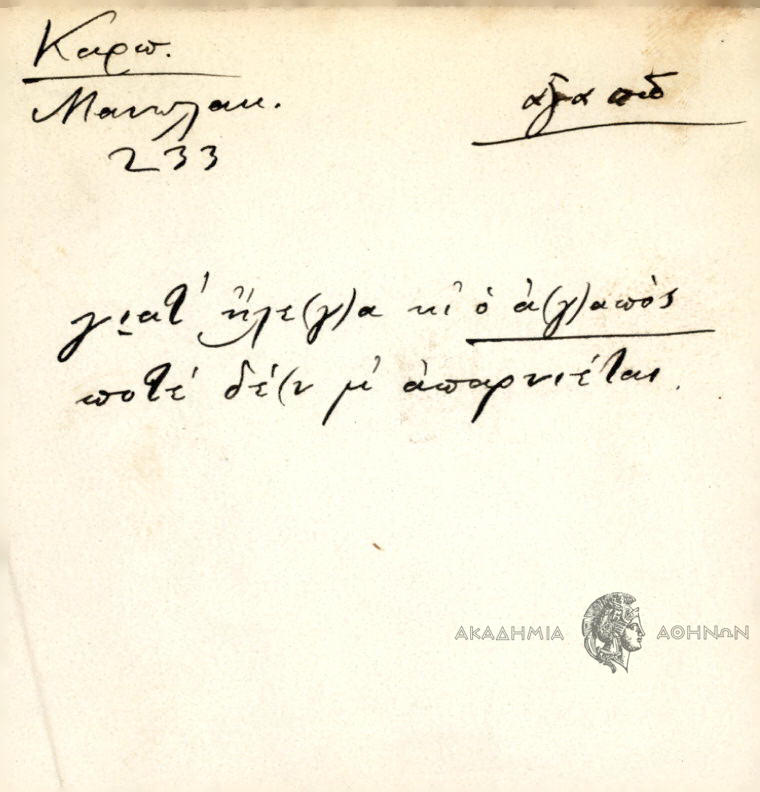 Καρπ.
Μανωλακ.
233
ἀγαπῶ
γιατ' ἤλε(γ)α κι ὁ ἀ(γ)απὸς
ποτέ δέ(ν μ' ἀπαρνιέται.
ΑΚΑΔΗΜΙΑ ΑΘΗΝΩΝ